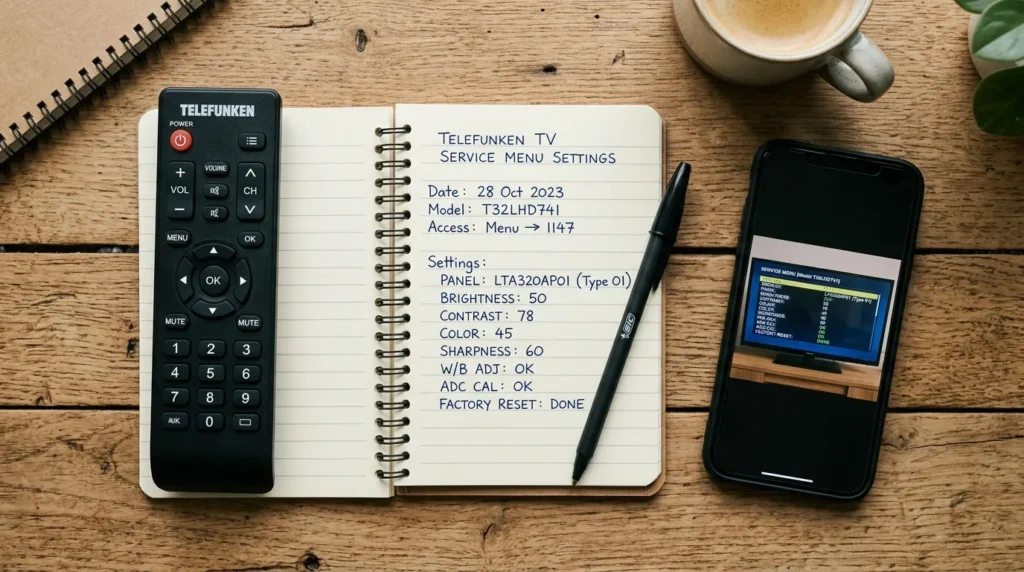 TELEFUNKEN
POWER
VOLUME
+
VOL
−
CH
MENU
OK
OK
MUTE
MUTE
1 2 3
4 5 6
7 8 9
0
TELEFUNKEN TV
SERVICE MENU SETTINGS
Date: 28 Oct 2023
Model: T32LHD741
Access: Menu → 1147
Settings:
PANEL: LTA320AP01 (Type 01)
BRIGHTNESS: 50
CONTRAST: 78
COLOR: 45
SHARPNESS: 60
W/B ADJ: OK
ADC CAL: OK
FACTORY RESET: DONE
BIC
SERVICE MENU